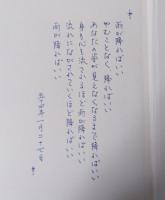 雨が降ればいい
やむことなく、降ればいい
あなたの姿が見えなくなるまで降ればいい
身も心も ほど雨が降ればいい
流れにながされていくほど降ればいい
雨が降ればいい
五十四年一月二十七日